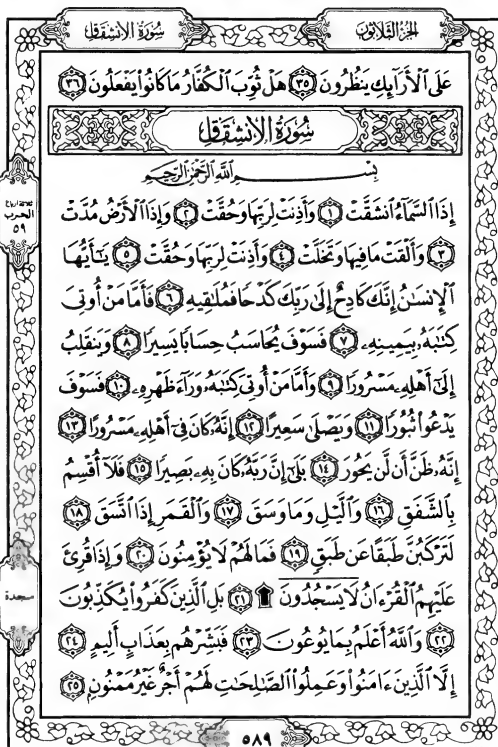 سُورَةُ الانشِقَاق
الجُزْءُ الثَّلَاثُونَ
عَلَى ٱلْأَرَآئِكِ يَنظُرُونَ ٣٥ هَلْ ثُوِّبَ ٱلْكُفَّارُ مَا كَانُوا۟ يَفْعَلُونَ ٣٦
سُورَةُ الانشِقَاق
بِسْمِ ٱللَّهِ ٱلرَّحْمَٰنِ ٱلرَّحِيمِ
إِذَا ٱلسَّمَآءُ ٱنشَقَّتْ ١ وَأَذِنَتْ لِرَبِّهَا وَحُقَّتْ ٢ وَإِذَا ٱلْأَرْضُ مُدَّتْ
٣ وَأَلْقَتْ مَا فِيهَا وَتَخَلَّتْ ٤ وَأَذِنَتْ لِرَبِّهَا وَحُقَّتْ ٥ يَٰٓأَيُّهَا
ٱلْإِنسَٰنُ إِنَّكَ كَادِحٌ إِلَىٰ رَبِّكَ كَدْحًا فَمُلَٰقِيهِ ٦ فَأَمَّا مَنْ أُوتِىَ
كِتَٰبَهُۥ بِيَمِينِهِۦ ٧ فَسَوْفَ يُحَاسَبُ حِسَابًا يَسِيرًا ٨ وَيَنقَلِبُ
إِلَىٰٓ أَهْلِهِۦ مَسْرُورًا ٩ وَأَمَّا مَنْ أُوتِىَ كِتَٰبَهُۥ وَرَآءَ ظَهْرِهِۦ ١٠ فَسَوْفَ
يَدْعُوا۟ ثُبُورًا ١١ وَيَصْلَىٰ سَعِيرًا ١٢ إِنَّهُۥ كَانَ فِىٓ أَهْلِهِۦ مَسْرُورًا ١٣
إِنَّهُۥ ظَنَّ أَن لَّن يَحُورَ ١٤ بَلَىٰٓ إِنَّ رَبَّهُۥ كَانَ بِهِۦ بَصِيرًا ١٥ فَلَآ أُقْسِمُ
بِٱلشَّفَقِ ١٦ وَٱلَّيْلِ وَمَا وَسَقَ ١٧ وَٱلْقَمَرِ إِذَا ٱتَّسَقَ ١٨
لَتَرْكَبُنَّ طَبَقًا عَن طَبَقٍ ١٩ فَمَا لَهُمْ لَا يُؤْمِنُونَ ٢٠ وَإِذَا قُرِئَ
عَلَيْهِمُ ٱلْقُرْءَانُ لَا يَسْجُدُونَ ۩ ٢١ بَلِ ٱلَّذِينَ كَفَرُوا۟ يُكَذِّبُونَ
٢٢ وَٱللَّهُ أَعْلَمُ بِمَا يُوعُونَ ٢٣ فَبَشِّرْهُم بِعَذَابٍ أَلِيمٍ ٢٤
إِلَّا ٱلَّذِينَ ءَامَنُوا۟ وَعَمِلُوا۟ ٱلصَّٰلِحَٰتِ لَهُمْ أَجْرٌ غَيْرُ مَمْنُونٍۭ ٢٥
ثلاثة أرباع
الحزب
٥٩
سجدة
٥٨٩